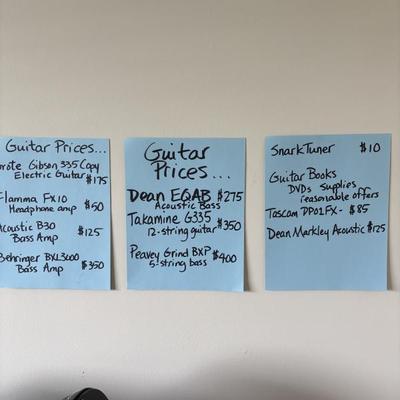 Guitar Prices...
Grote Gibson 335 Copy
Electric Guitar $175
Flamma FX10
Headphone amp $50
Acoustic B30
Bass Amp $125
Behringer BXL3000
Bass Amp $350
Guitar
Prices...
Dean EQAB $275
Acoustic Bass
Takamine G335
12-string guitar $350
Peavey Grind BXP
5-string bass $400
Snark Tuner $10
Guitar Books
DVDs Supplies
reasonable offers
Tascam DP01FX- $85
Dean Markley Acoustic $125